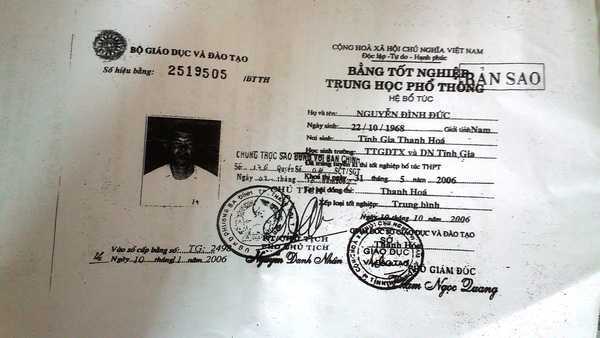 BỘ GIÁO DỤC VÀ ĐÀO TẠO
Số hiệu bằng: 2519505 /BTTH
CỘNG HOÀ XÃ HỘI CHỦ NGHĨA VIỆT NAM
Độc lập - Tự do - Hạnh phúc
BẰNG TỐT NGHIỆP
TRUNG HỌC PHỔ THÔNG
BẢN SAO
HỆ BỔ TÚC
Họ và tên: NGUYỄN ĐÌNH ĐỨC
Ngày sinh: 22 / 10 / 1968 Giới tính: Nam
Nơi sinh: Tĩnh Gia Thanh Hoá
Học sinh trường: TTGDTX và DN Tĩnh Gia
Đã trúng tuyển kì thi tốt nghiệp bổ túc THPT
Khoá thi ngày 31 tháng 5 năm 2006
Hội đồng thi: Thanh Hoá
Xếp loại tốt nghiệp: Trung bình
Ngày 10 tháng 10 năm 2006
GIÁM ĐỐC SỞ GIÁO DỤC VÀ ĐÀO TẠO
Thanh Hóa
SỞ
GIÁO DỤC
VÀ ĐÀO TẠO
PHÓ GIÁM ĐỐC
Phạm Ngọc Quang
CHỨNG THỰC SAO ĐÚNG VỚI BẢN CHÍNH
SCT/SGT
CHỦ TỊCH
PHÓ CHỦ TỊCH
Nguyễn Danh Nhâm
Vào sổ cấp bằng số: TG:
Ngày 10 tháng 11 năm 2006